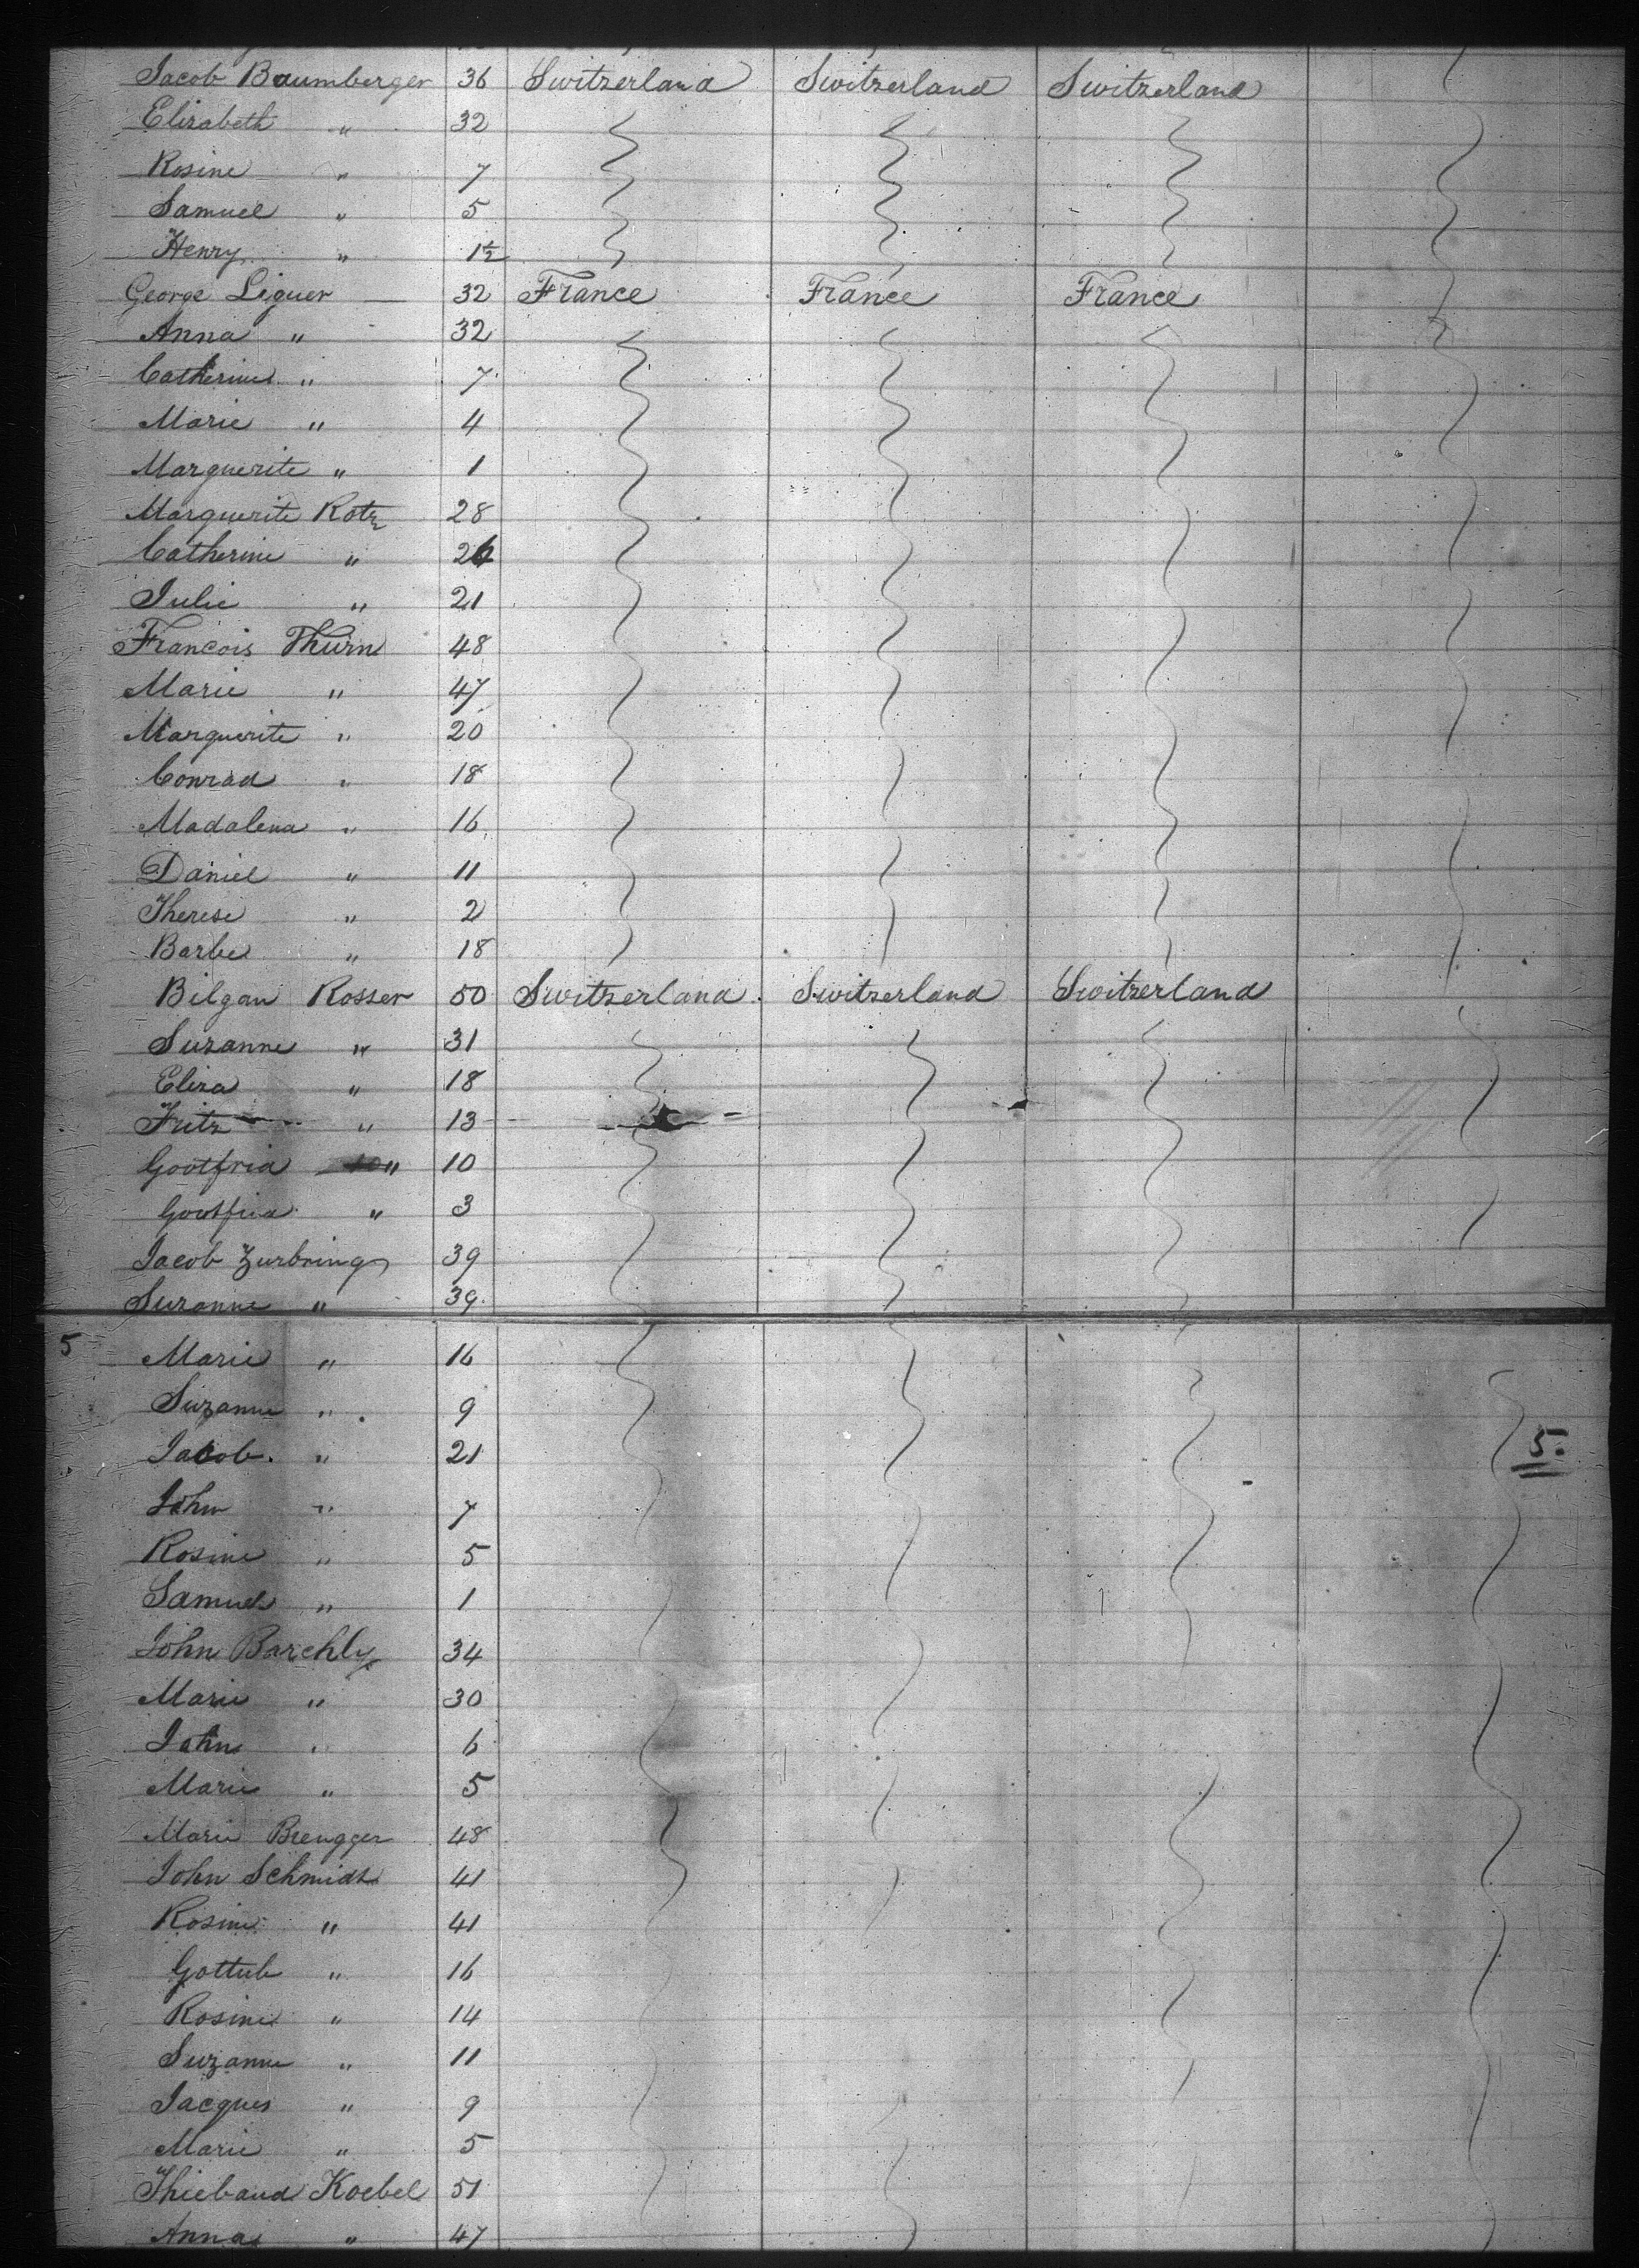 Jacob Baumberger 36 Switzerland Switzerland Switzerland
Elizabeth " 32
Rosine " 7
Samuel " 5
Henry " 1½
George Liguer 32 France France France
Anna " 32
Catherine " 7
Marie " 4
Marguerite " 1
Marguerite Rotz 28
Catherine "
Julie " 21
Francois Thurn 48
Marie " 47
Marguerite " 20
Conrad " 18
Madalena " 16
Daniel " 11
Therese " 2
Barbe " 18
Bilgau Rosser 50 Switzerland Switzerland Switzerland
Suzanne " 31
Eliza " 18
Fritz " 13
Gootfria " 10
Gootfria " 3
Jacob Zurbring 39
Suzanne " 39
5 Marie " 16
Suzanne " 9
Jacob " 21
5.
John " 7
Rosine " 5
Samuel " 1
John Barchly 34
Marie " 30
John " 6
Marie " 5
Marie Breugger 48
John Schmidt 41
Rosine " 41
Gottlieb " 16
Rosine " 14
Suzanne " 11
Jacques " 9
Marie " 5
Thiebaud Koebel 51
Anna " 47